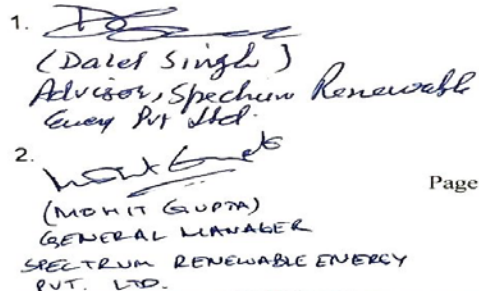 1.
(Dalel Singh)
Advisor, Spectrum Renewable
Energy Pvt Ltd.
2.
(MOHIT GUPTA)
GENERAL MANAGER
SPECTRUM RENEWABLE ENERGY
PVT. LTD.
Page